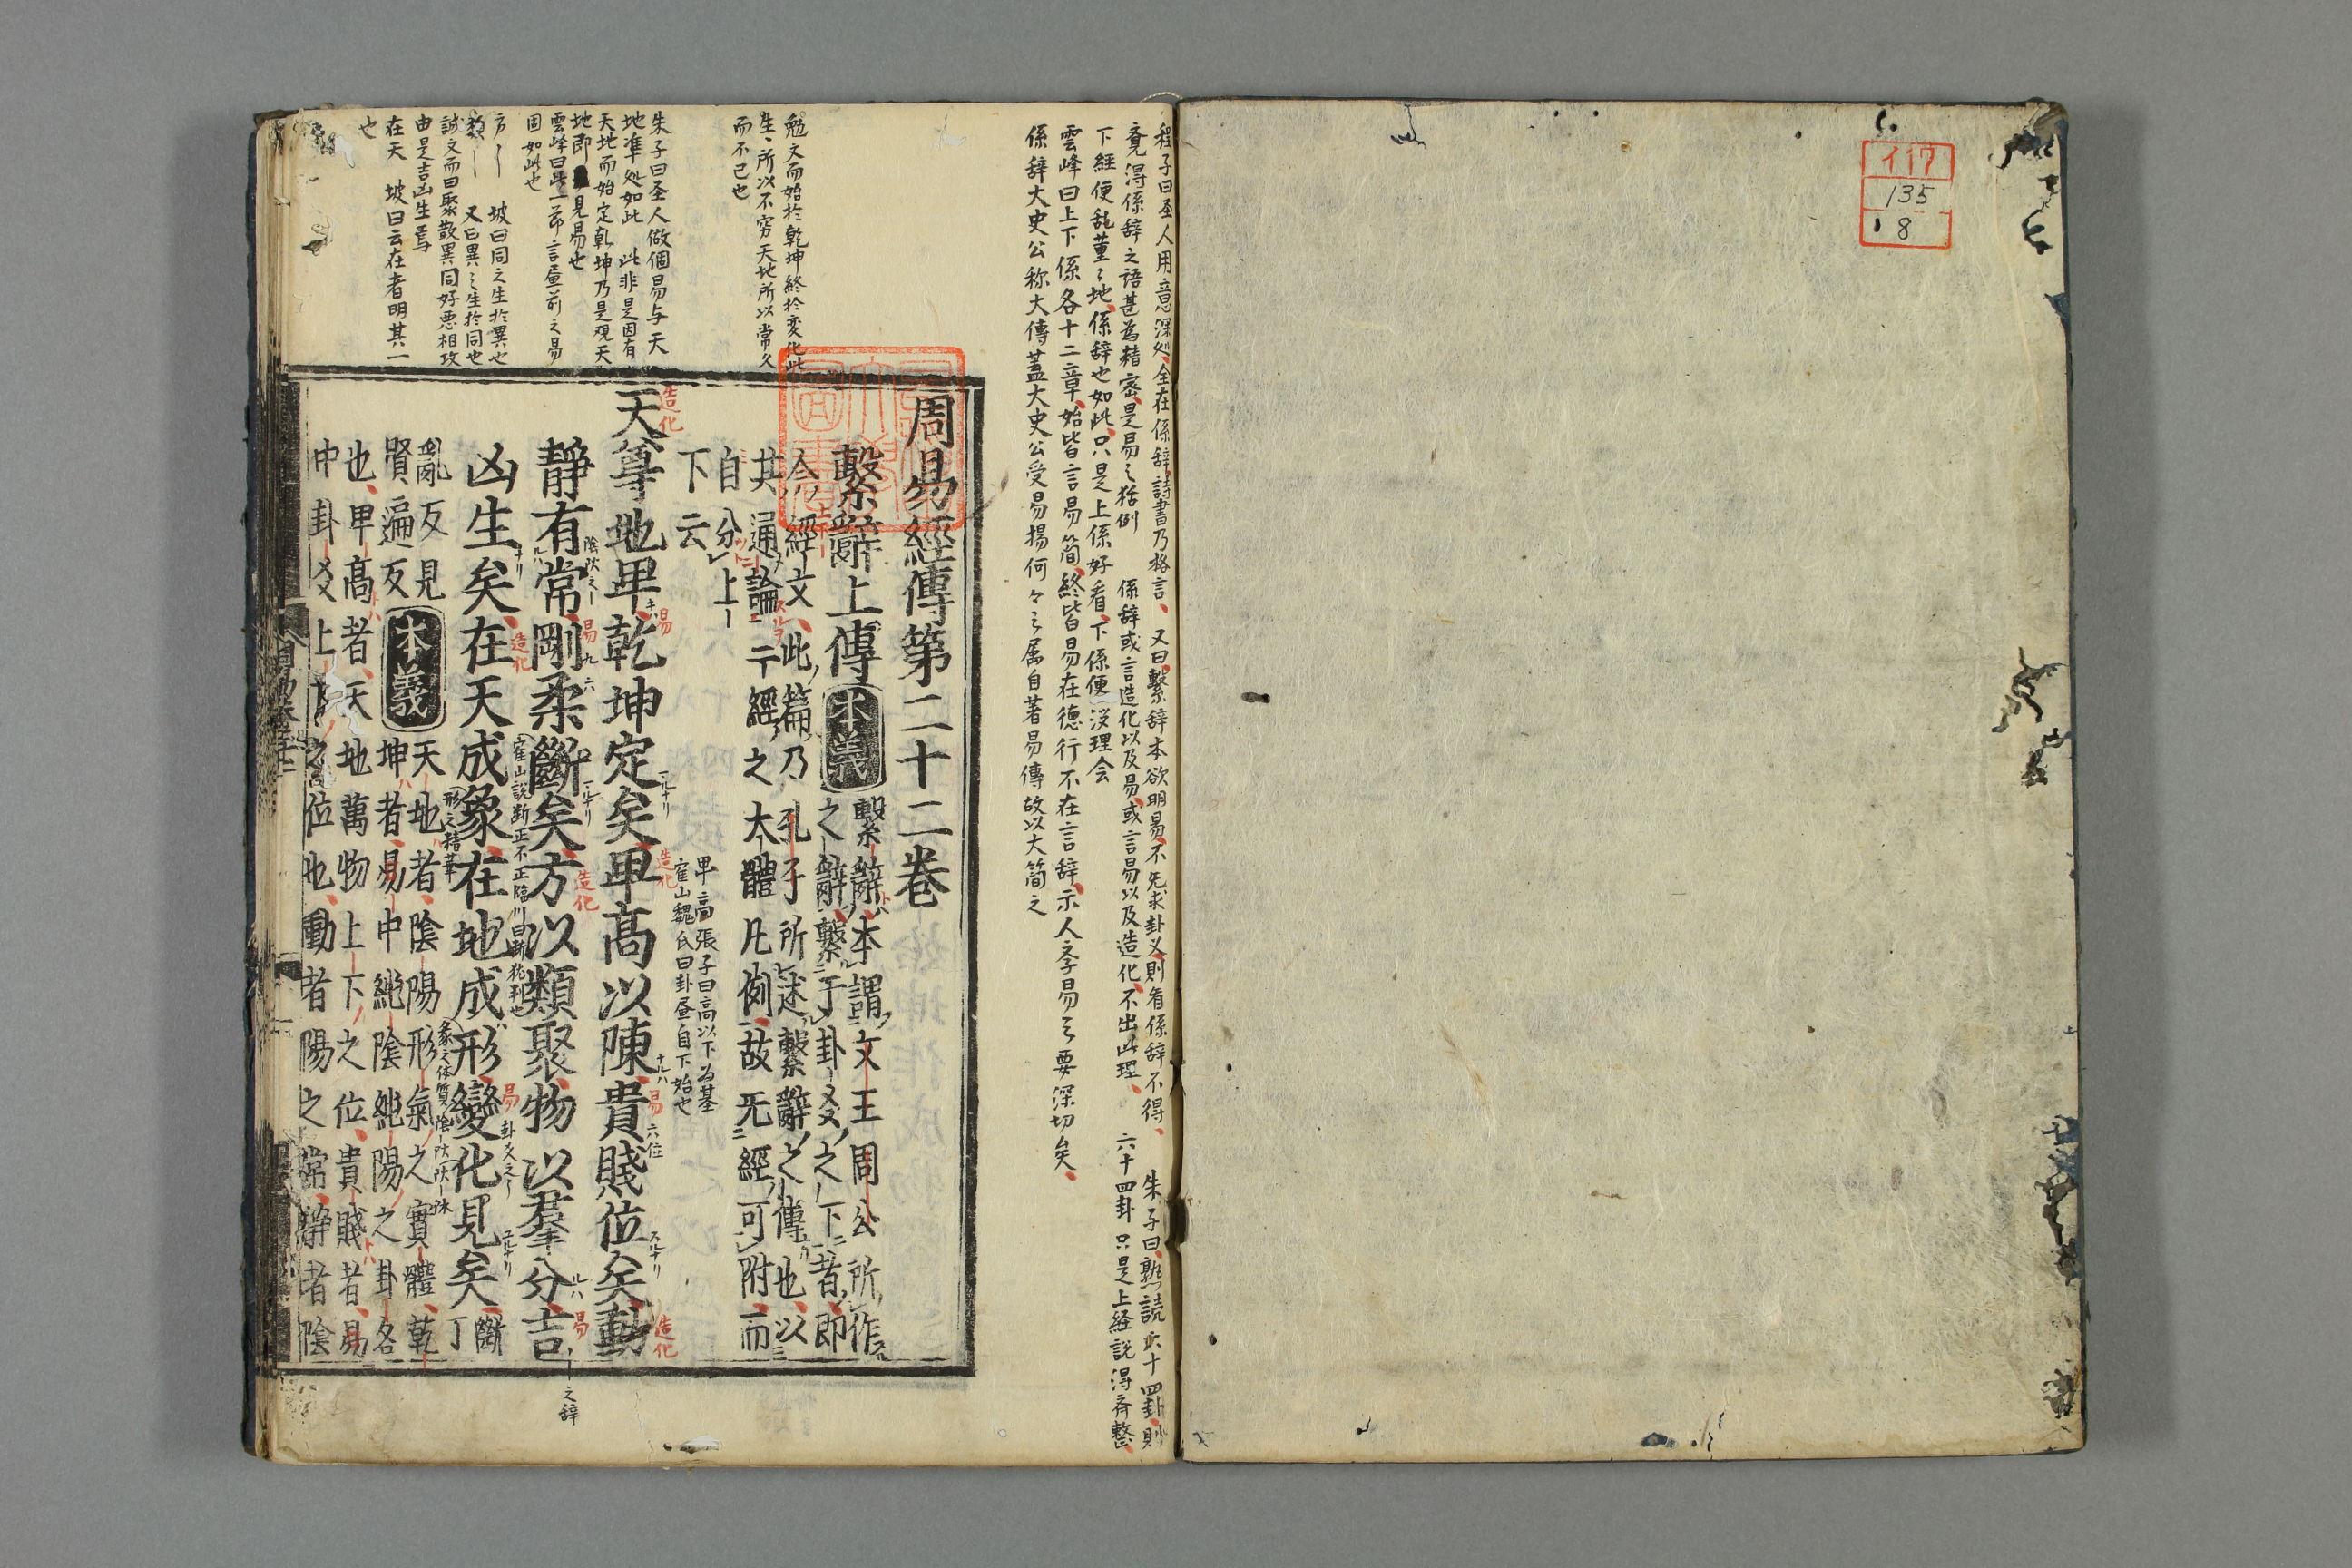 イ17
135
8
程子曰圣人用意深処全在係辞、詩書乃格言、又曰繫辞本欲明易、不先求卦义則看係辞不得、朱子曰熟読六十四卦則
竟得係辞之語甚為精密、是易之括例 係辞或言造化以及易、或言易以及造化、不出此理、六十四卦只是上経說得斉整、
下経便乱董々地、係辞也如此、只是上係好看、下係便没理会
雲峰曰上下係各十二章、始皆言易簡、終皆曰易在德行不在言辞、示人李易之要深切矣、
係辞大史公称大傳蓋大史公受易揚何々之属自著易傳故以大簡之
勉文而始於乾坤終於変化此
生々所以不穷天地所以常久
而不已也
朱子曰圣人做個易与天
地準処如此 此非是因有
天地而始定乾坤乃是观天
地即見易也
雲峰曰此一节言画前之易
固如此也
方ーー 坡曰同之生於異也
類ーー 又曰異之生於同也
誠文而曰聚散異同好悪相攻
由是吉凶生焉
在天 坡曰云在者明其一
也
周易經傳第二十二卷
繫辭上傳 本義 繫辭本謂文王周公所作
之辭繫于卦爻之下者、即
今經文、此篇乃孔子所述繫辭之傳也、以
其通論一經之大體凡例、故无經可附、而
自分上ー
下云
卑高張子曰高以下为基
寉山魏氏曰卦画自下始也
天尊地卑、乾坤定矣、卑高以陳、貴賤位矣、動
静有常、剛柔斷矣、方以類聚、物以羣分、吉
凶生矣、在天成象、在地成形、變化見矣、斷丁
亂反見
賢遍反 本義 天地者、陰陽形氣之實體、乾
坤者、易中純陰純陽之卦名
也、卑高者、天地萬物上下之位、貴賤者、易
中卦爻上下之位也、動者陽之常、静者陰